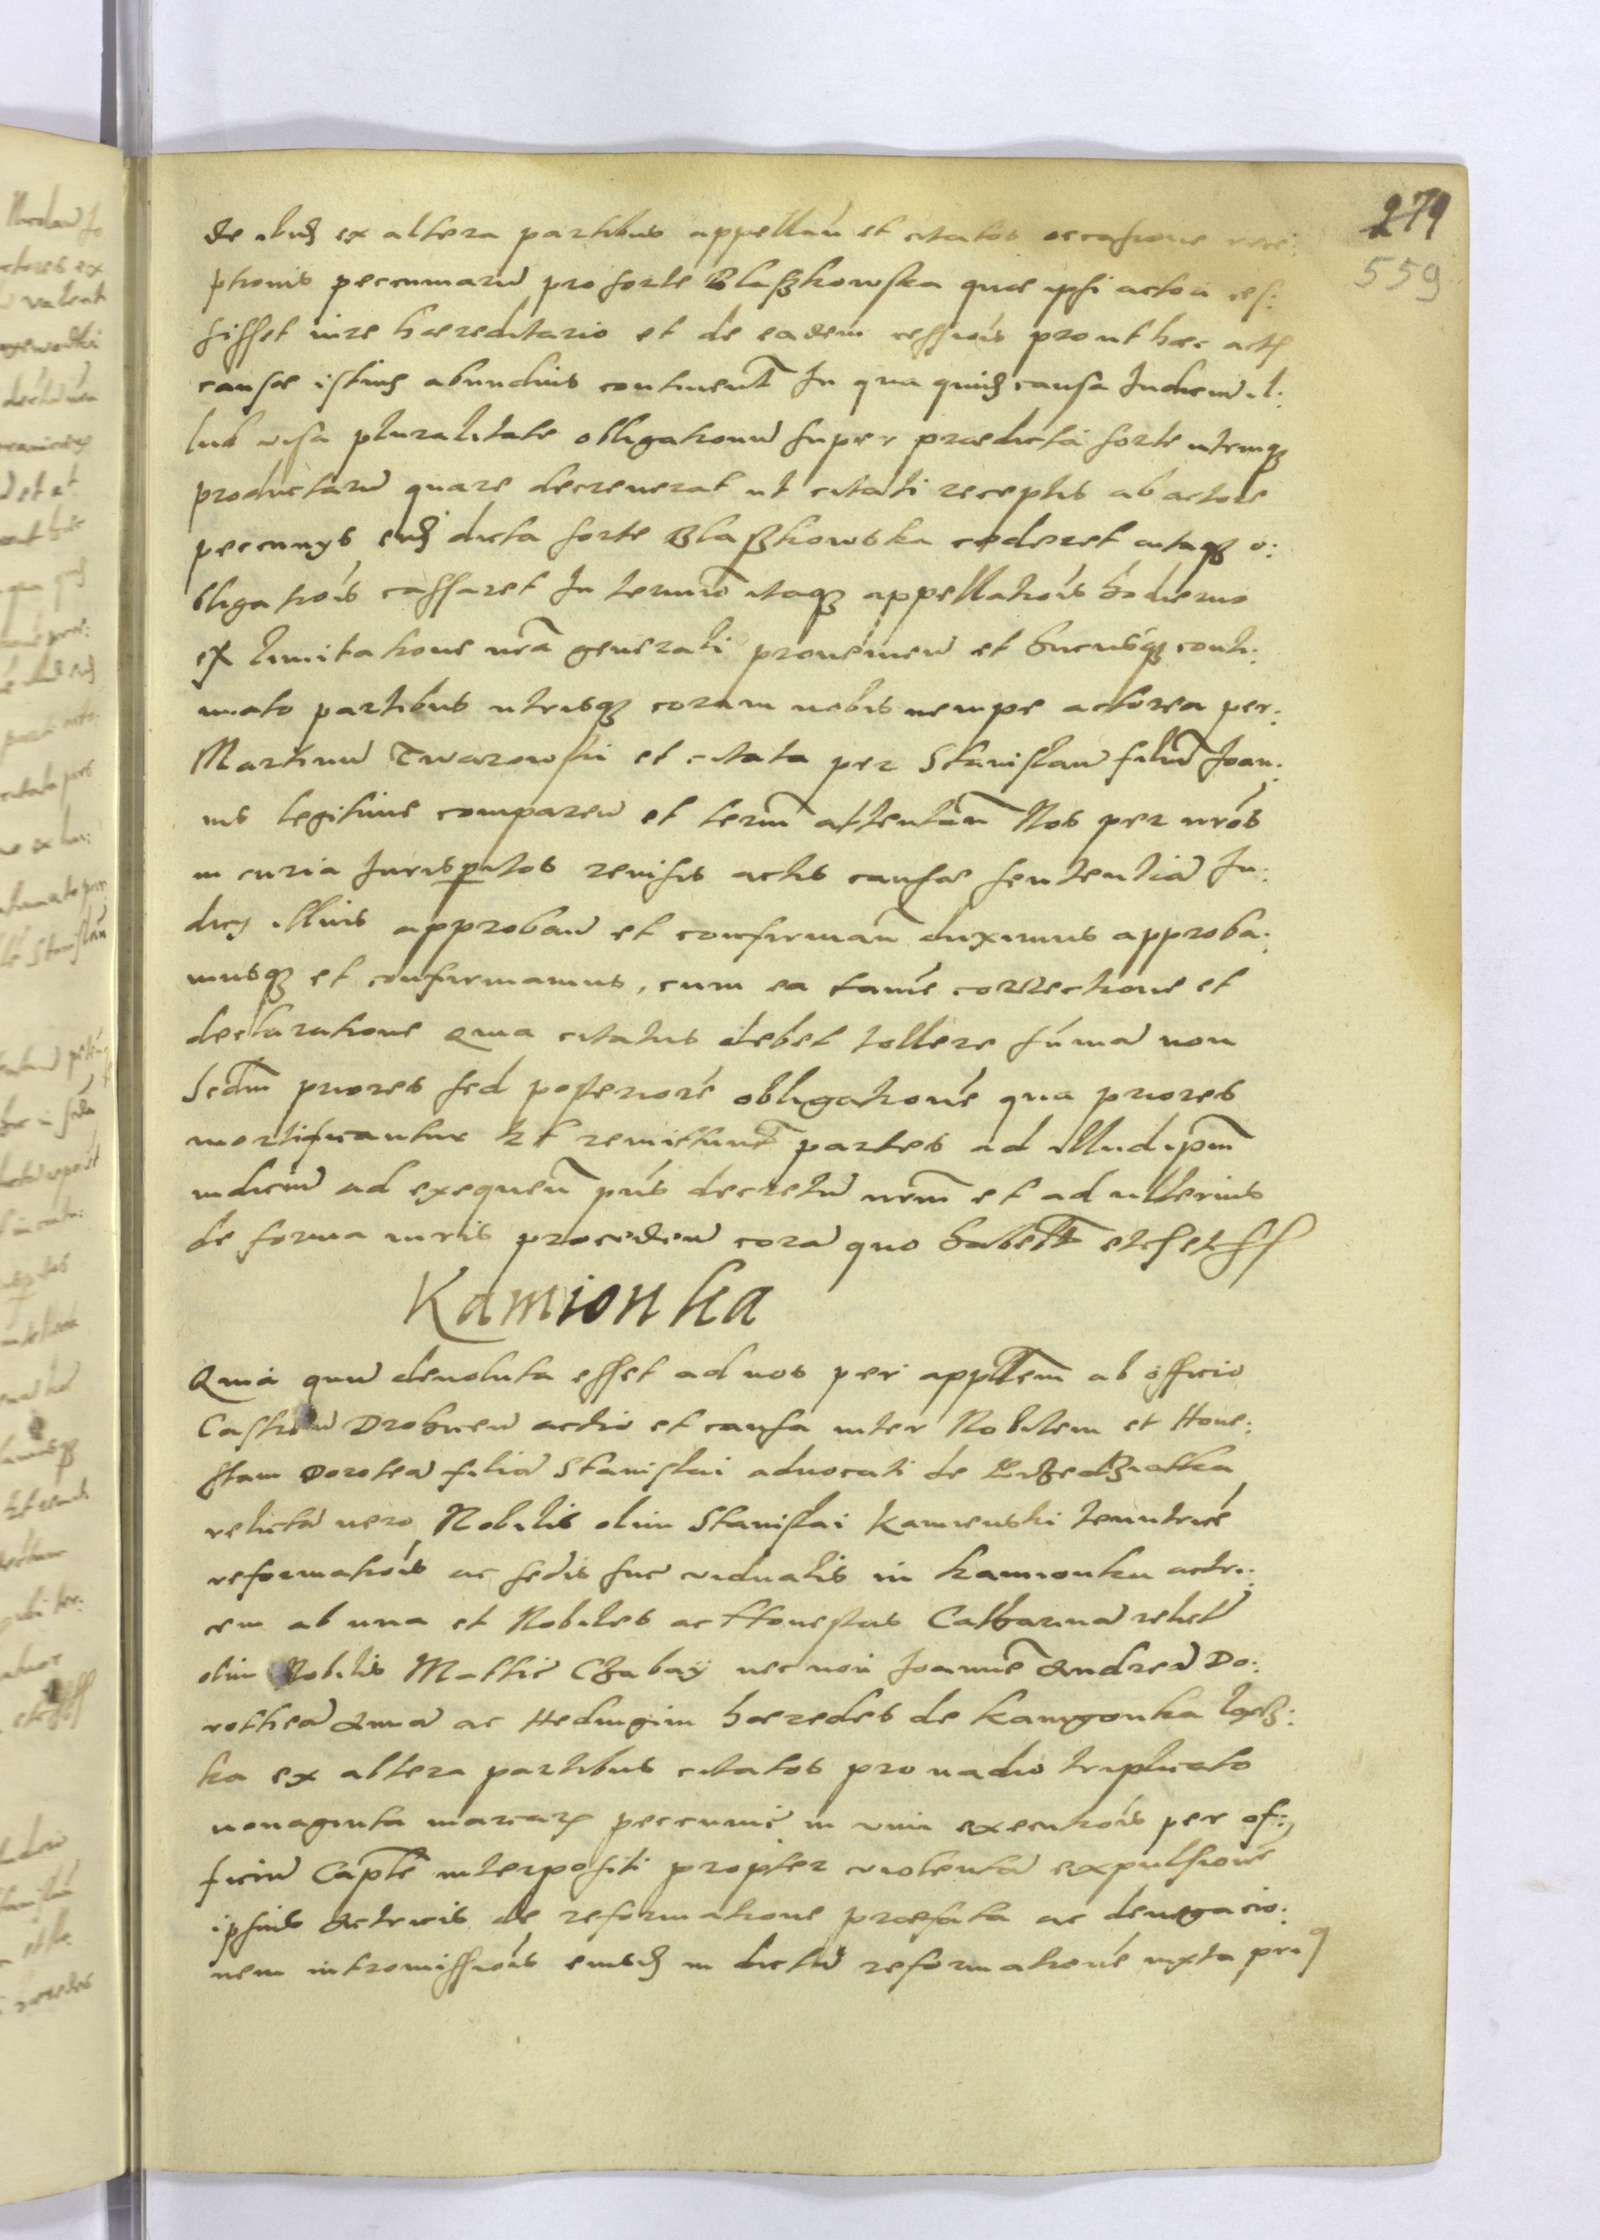 279
559
de ibid ex altera partibus appellań et citatos occasione rece:
ptionis pecuniarū pro sorte Blaszkowska quae ipsi actori ces:
sisset iure haereditario et de eadem cessiois prout haec acta
causae istius abundius continent In qua quid causa Iudiciū il:
lud visa pluralitate obligationū super praedicta sorte utrinq
productarū quare decreverat ut citati receptis ab actore
pecunys eid dicta sorte Blaszkowska cederet citaq o:
bligatiois cassaret In termio itaq appellatiois hodierno
ex limitatione nra generali provenień et hucusq conti:
nuato partibus utrisq coram nobis nempe actorea per
Martinū Twarowski et citata per Stanislaū filiū Joan:
nis legitime compareń et term attentań Nos per nros
in curia Iurisperitos revisis actis causae sententiā Iu:
dicy illius approbań et confirmań duximus approba:
musq et confirmamus, cum ea tame correctione et
declaratione Quia citatus debet tollere sumā non
Scdm priores sed posteriore obligatione qua priores
mortificantur Et remittunt partes ad illud ipm
iudiciū ad exequen pns decretū nrm et ad ulterius
de forma iuris procedeń corā quo habebt etc etc
Kamionka
Quia quū devoluta esset ad nos per appltem ab officio
Castreń Drohicen actio et causa inter Nobilem et Hone:
stam Doroteā filiā Stanislai advocati de
relictā vero Nobilis olim Stanislai Kamienski tenutrice
reformatiois ac sedis suae vidualis in Kamionka actri:
cem ab una et Nobiles ac Honestas Catharinā relictā
olim Nobilis Mathie Czabay necnon Joanne Andreā Do:
rotheā Annā ac Hedvigim haeredes de Kamyonka
ka ex altera partibus citatos pro vadio triplicato
nonaginta marcarū pecunie in vim executiois per of:
ficiū Capte interpositi propter violentā expulsione
ipsius Actricis de reformatione praefata ac denegacio:
nem intromissiois eiusd in dictā reformatione iuxta pri